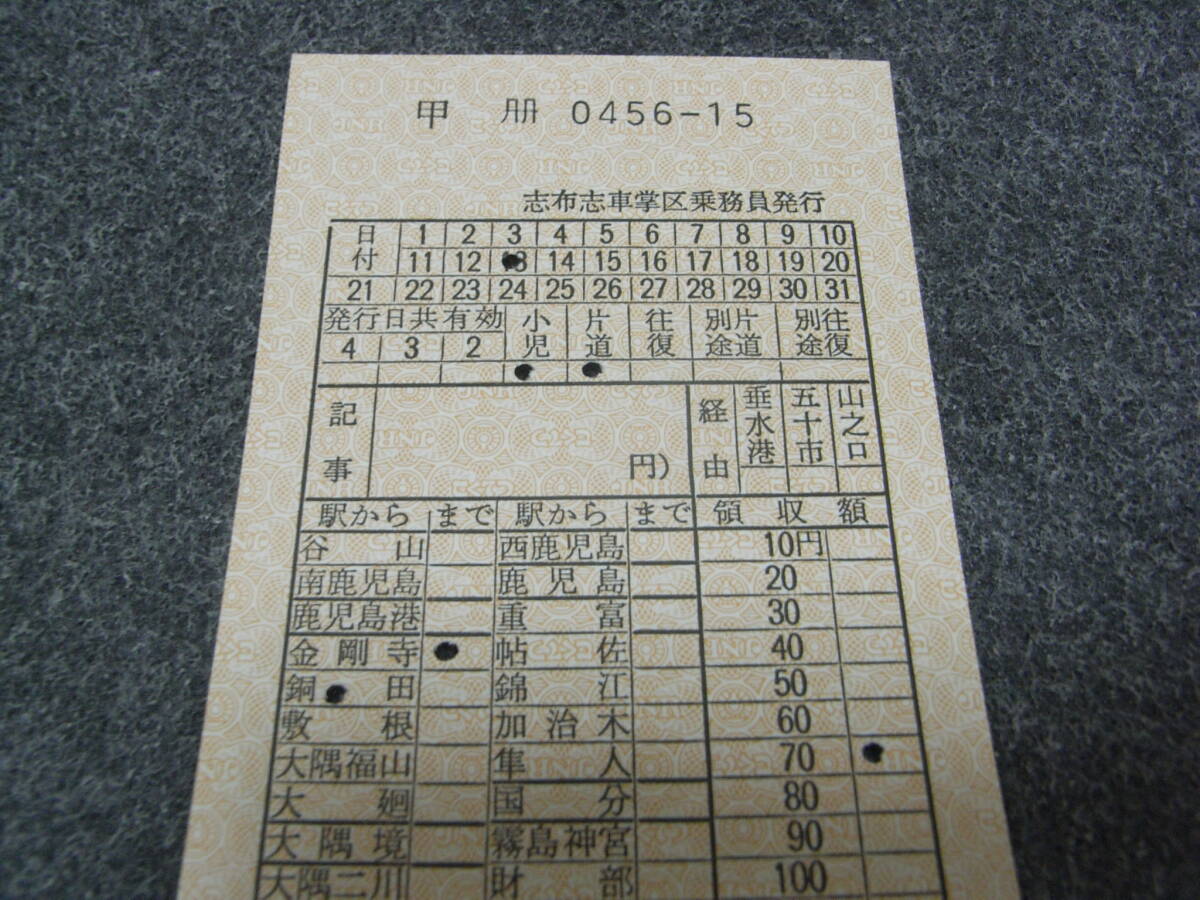 甲 册 0456-15
志布志車掌区乗務員発行
日付 1 2 3 4 5 6 7 8 9 10
11 12 13 14 15 16 17 18 19 20
21 22 23 24 25 26 27 28 29 30 31
発行日共有効 小児 片道 往復 別片途道 別往途復
4 3 2
記事 円) 経由 垂水港 五十市 山之口
駅から まで 駅から まで 領収額
谷山 西鹿児島 10円
南鹿児島 鹿児島 20
鹿児島港 重富 30
金剛寺 帖佐 40
銅田 錦江 50
敷根 加治木 60
大隅福山 隼人 70
大廻 国分 80
大隅境 霧島神宮 90
大隅二川 財部 100